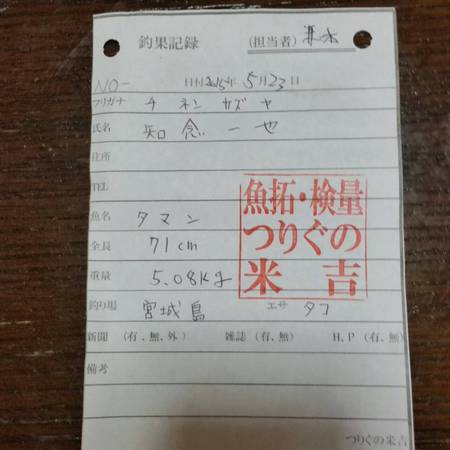 釣果記録 (担当者)
NO- 日付 2015年 5月23日
フリガナ チネン カズヤ
氏名 知念一也
住所
TEL
魚名 タマン
全長 71cm
重量 5.08Kg
釣り場 宮城島 エサ タコ
新聞 (有、無、外) 雑誌 (有、無) H、P (有、無)
備考
魚拓・検量
つりぐの
米吉
つりぐの米吉